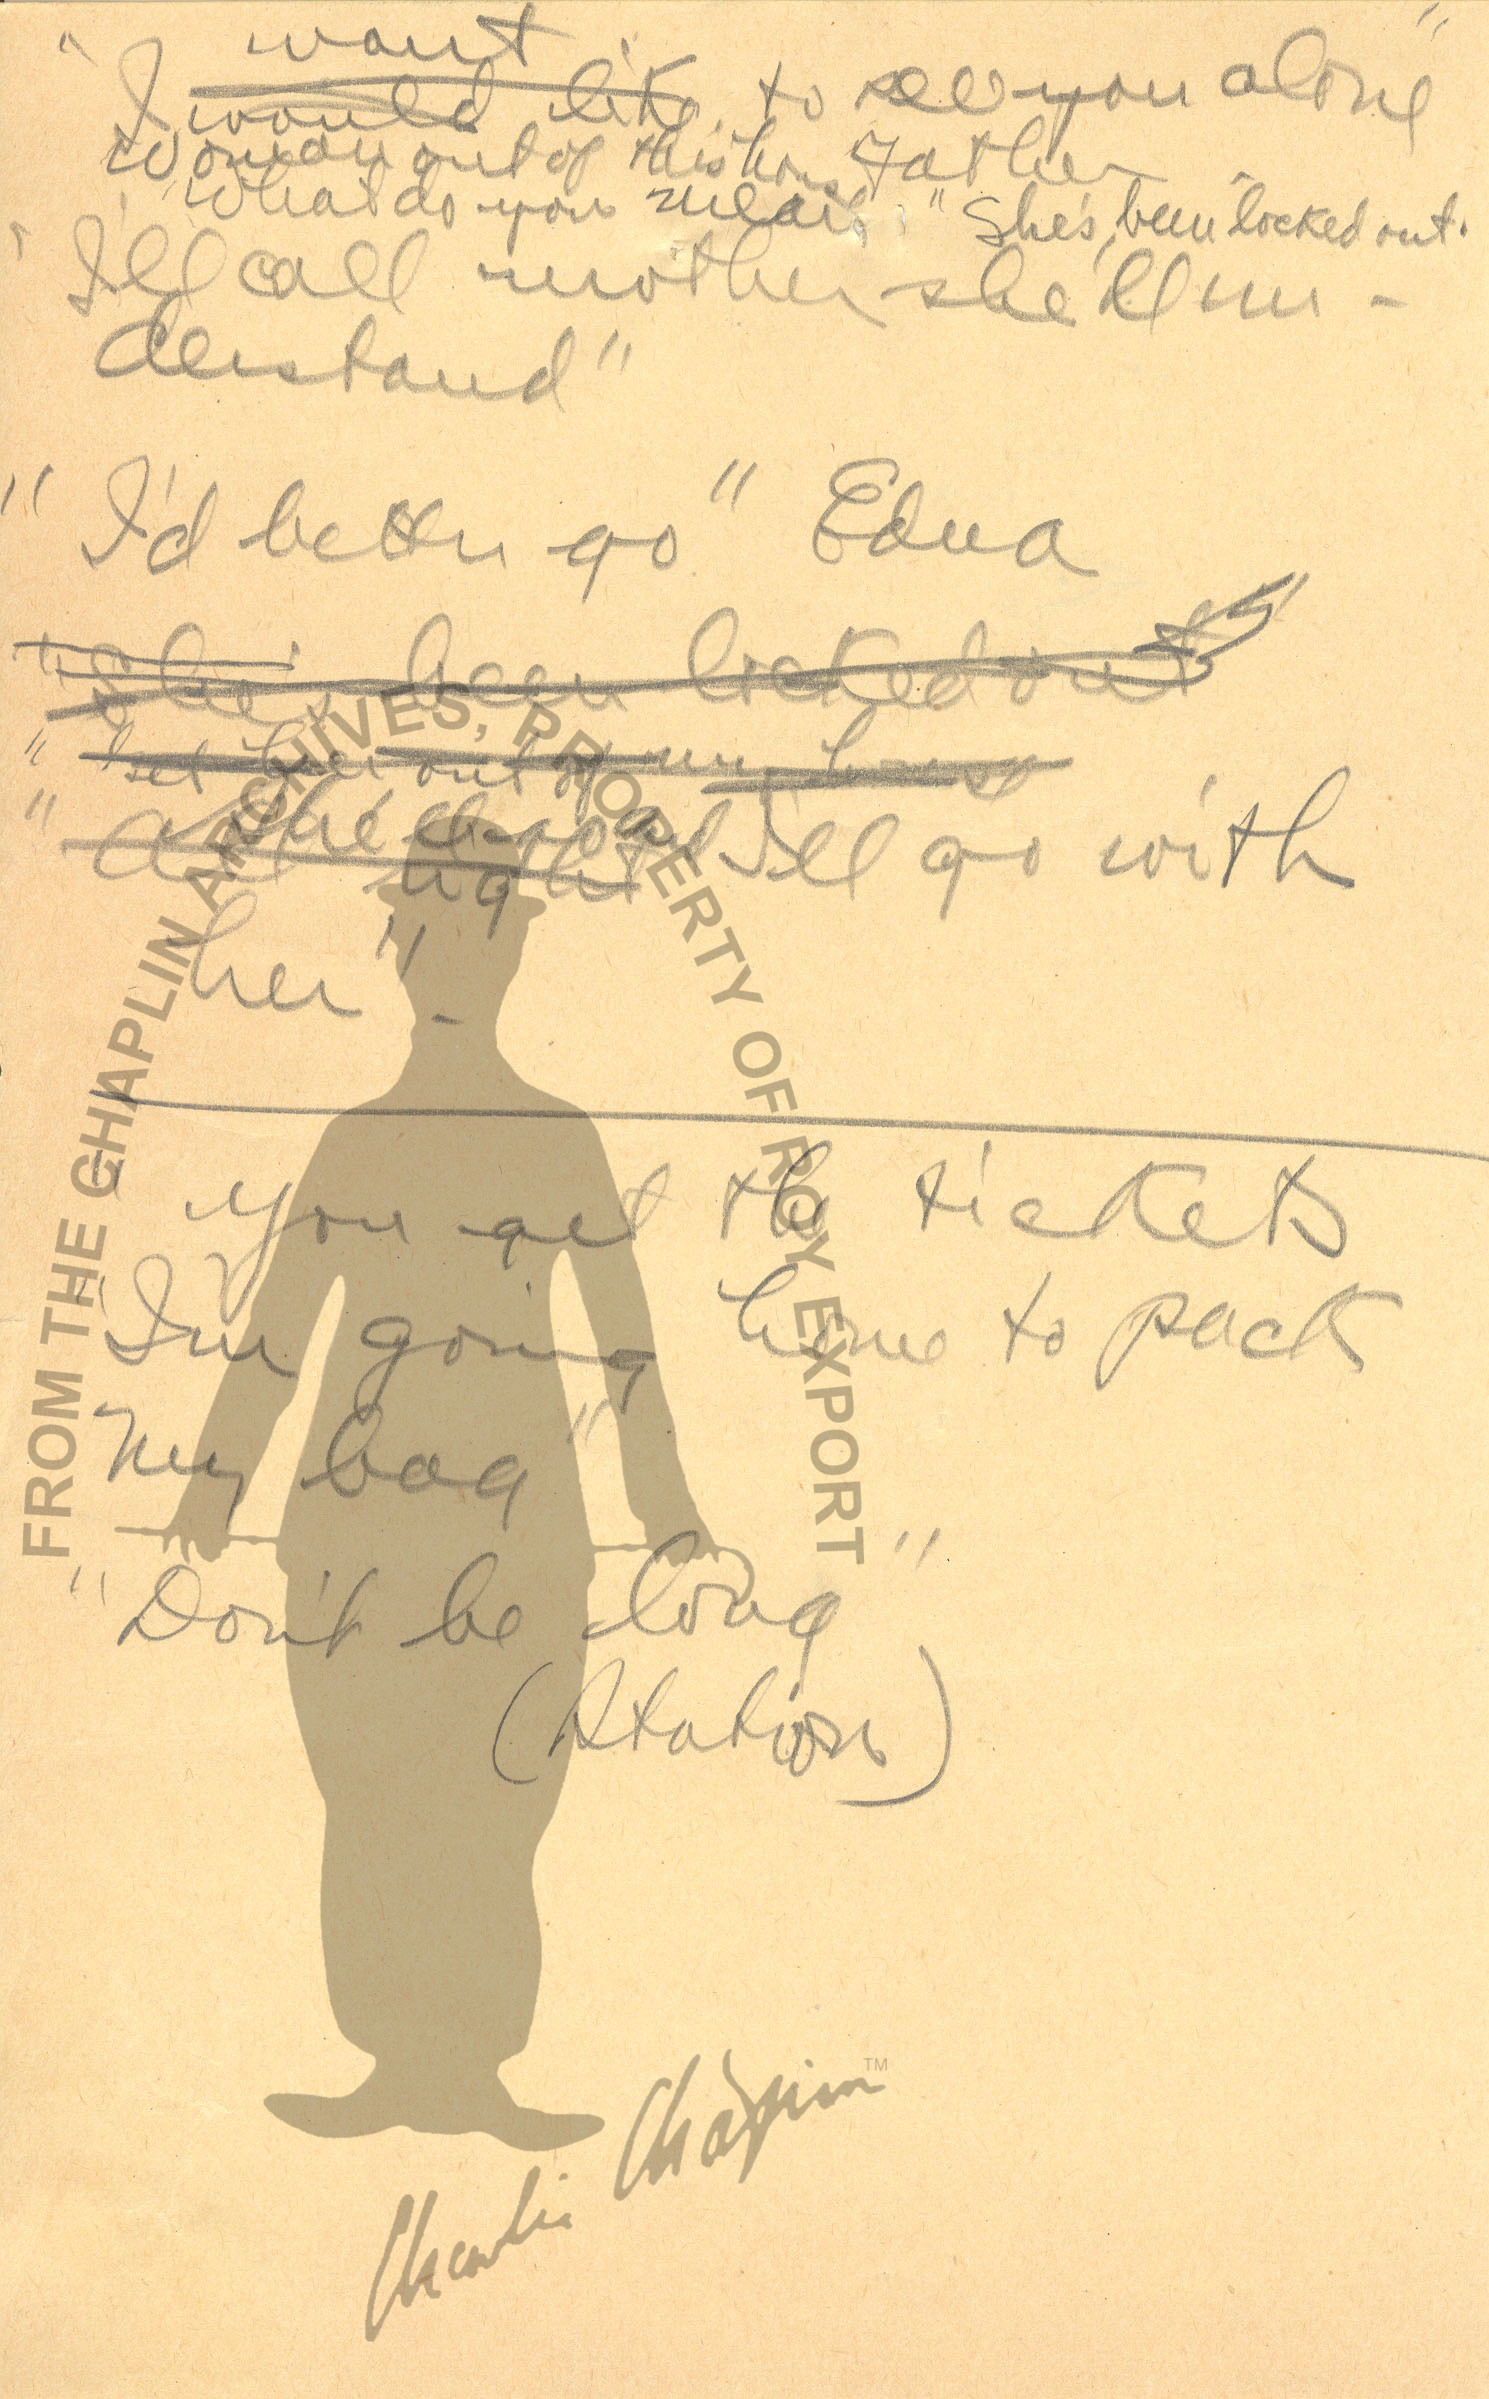 want
"I would like to see you alone"
woman out of this house Father
"What do you mean." "She's been locked out.
"I'll call mother she'll un-
derstand"
"I'd better go" Edna
"She's been locked out"
"get her out of my house
"
All right I'll go with
her"-
You get the tickets
"I'm going home to pack
my bag"
"Don't be long"
(Station)
FROM THE CHAPLIN ARCHIVES, PROPERTY OF ROY EXPORT
Charlie Chaplin™